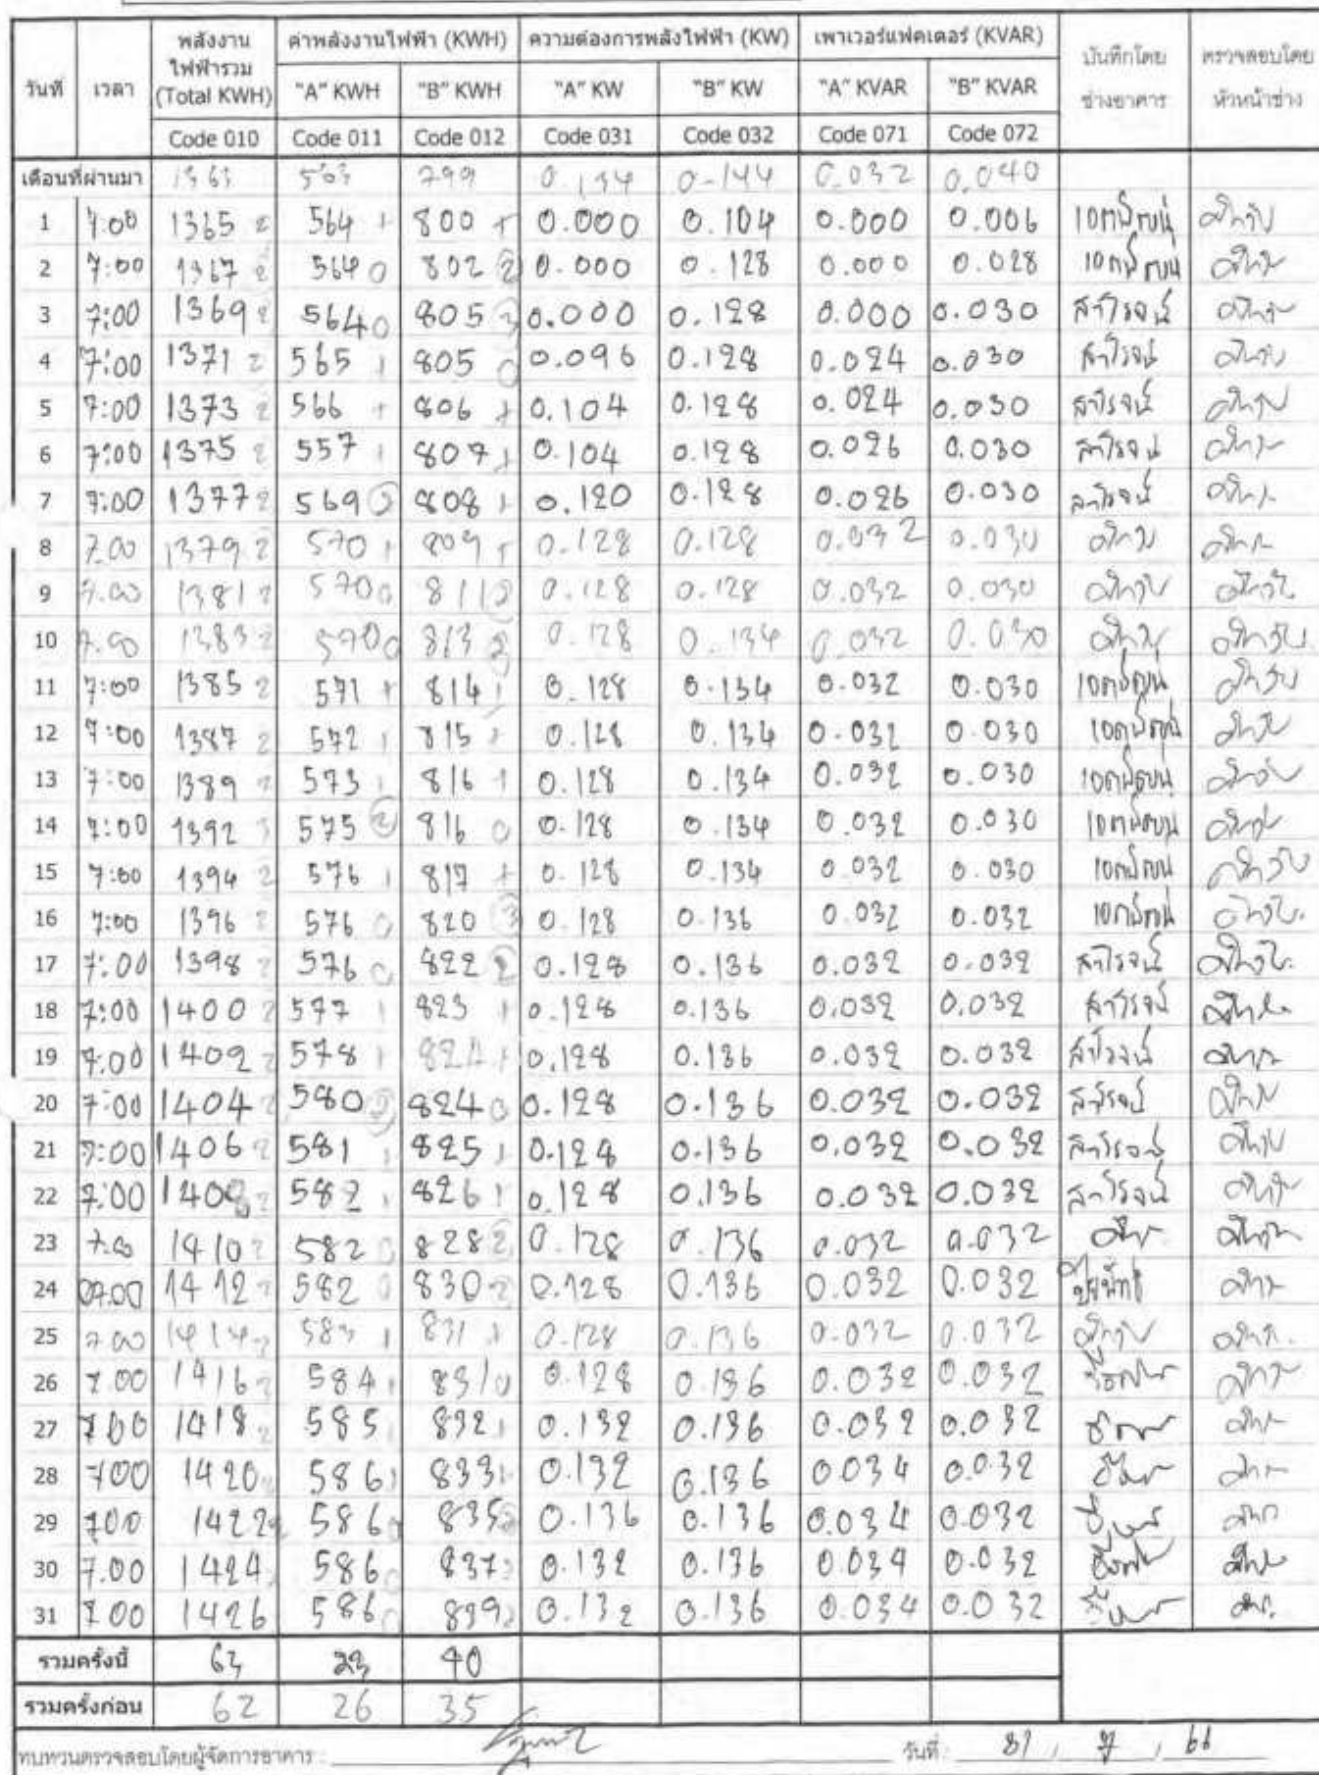 วันที่ เวลา พลังงานไฟฟ้ารวม (Total KWH) ค่าพลังงานไฟฟ้า (KWH) ความต้องการพลังไฟฟ้า (KW) เพาเวอร์แฟคเตอร์ (KVAR) บันทึกโดย ช่างอาคาร ตรวจสอบโดย หัวหน้าช่าง
"A" KWH "B" KWH "A" KW "B" KW "A" KVAR "B" KVAR
Code 010 Code 011 Code 012 Code 031 Code 032 Code 071 Code 072
เดือนที่ผ่านมา 1363 563 799 0.134 0-144 0.032 0.040
1 7:00 1365 2 564 1 800 1 0.000 0.104 0.000 0.006
2 7:00 1367 2 564 0 802 2 0.000 0.128 0.000 0.028
3 7:00 1369 2 564 0 805 3 0.000 0.128 0.000 0.030 สาโรจน์
4 7:00 1371 2 565 1 805 0 0.096 0.128 0.024 0.030 สาโรจน์
5 7:00 1373 2 566 1 806 1 0.104 0.128 0.024 0.030 สาโรจน์
6 7:00 1375 2 557 1 807 1 0.104 0.128 0.026 0.030 สาโรจน์
7 7:00 1377 2 569 2 808 1 0.120 0.128 0.026 0.030 สาโรจน์
8 7.00 1379 2 570 1 809 1 0.128 0.128 0.032 0.030
9 7.00 1381 2 570 0 811 2 0.128 0.128 0.032 0.030
10 7.00 1383 2 570 0 813 2 0.128 0.134 0.032 0.030
11 7:00 1385 2 571 1 814 1 0.128 0.134 0.032 0.030
12 7:00 1387 2 572 1 815 1 0.128 0.134 0.032 0.030
13 7:00 1389 2 573 1 816 1 0.128 0.134 0.032 0.030
14 7:00 1392 3 575 2 816 0 0.128 0.134 0.032 0.030
15 7:00 1394 2 576 1 817 1 0.128 0.134 0.032 0.030
16 7:00 1396 2 576 0 820 3 0.128 0.136 0.032 0.032
17 7:00 1398 2 576 0 822 2 0.128 0.136 0.032 0.032 สาโรจน์
18 7:00 1400 2 577 1 823 1 0.128 0.136 0.032 0.032 สาโรจน์
19 7:00 1402 2 578 1 824 1 0.128 0.136 0.032 0.032 สาโรจน์
20 7:00 1404 2 580 2 824 0 0.128 0.136 0.032 0.032 สาโรจน์
21 7:00 1406 2 581 1 825 1 0.128 0.136 0.032 0.032 สาโรจน์
22 7:00 1408 2 582 1 826 1 0.128 0.136 0.032 0.032 สาโรจน์
23 7.00 1410 2 582 0 828 2 0.128 0.136 0.032 0.032
24 07.00 1412 2 582 0 830 2 0.128 0.136 0.032 0.032
25 7.00 1414 2 583 1 831 1 0.128 0.136 0.032 0.032
26 7.00 1416 2 584 1 831 0 0.128 0.136 0.032 0.032
27 7.00 1418 2 585 1 832 1 0.132 0.136 0.032 0.032
28 700 1420 2 586 1 833 1 0.132 0.136 0.034 0.032
29 700 1422 2 586 0 835 2 0.136 0.136 0.034 0.032
30 7.00 1424 2 586 0 837 2 0.132 0.136 0.034 0.032
31 7.00 1426 586 0 839 2 0.132 0.136 0.034 0.032
รวมครั้งนี้ 63 23 40
รวมครั้งก่อน 62 26 35
ทบทวนตรวจสอบโดยผู้จัดการอาคาร : วันที่ 31 / / 66